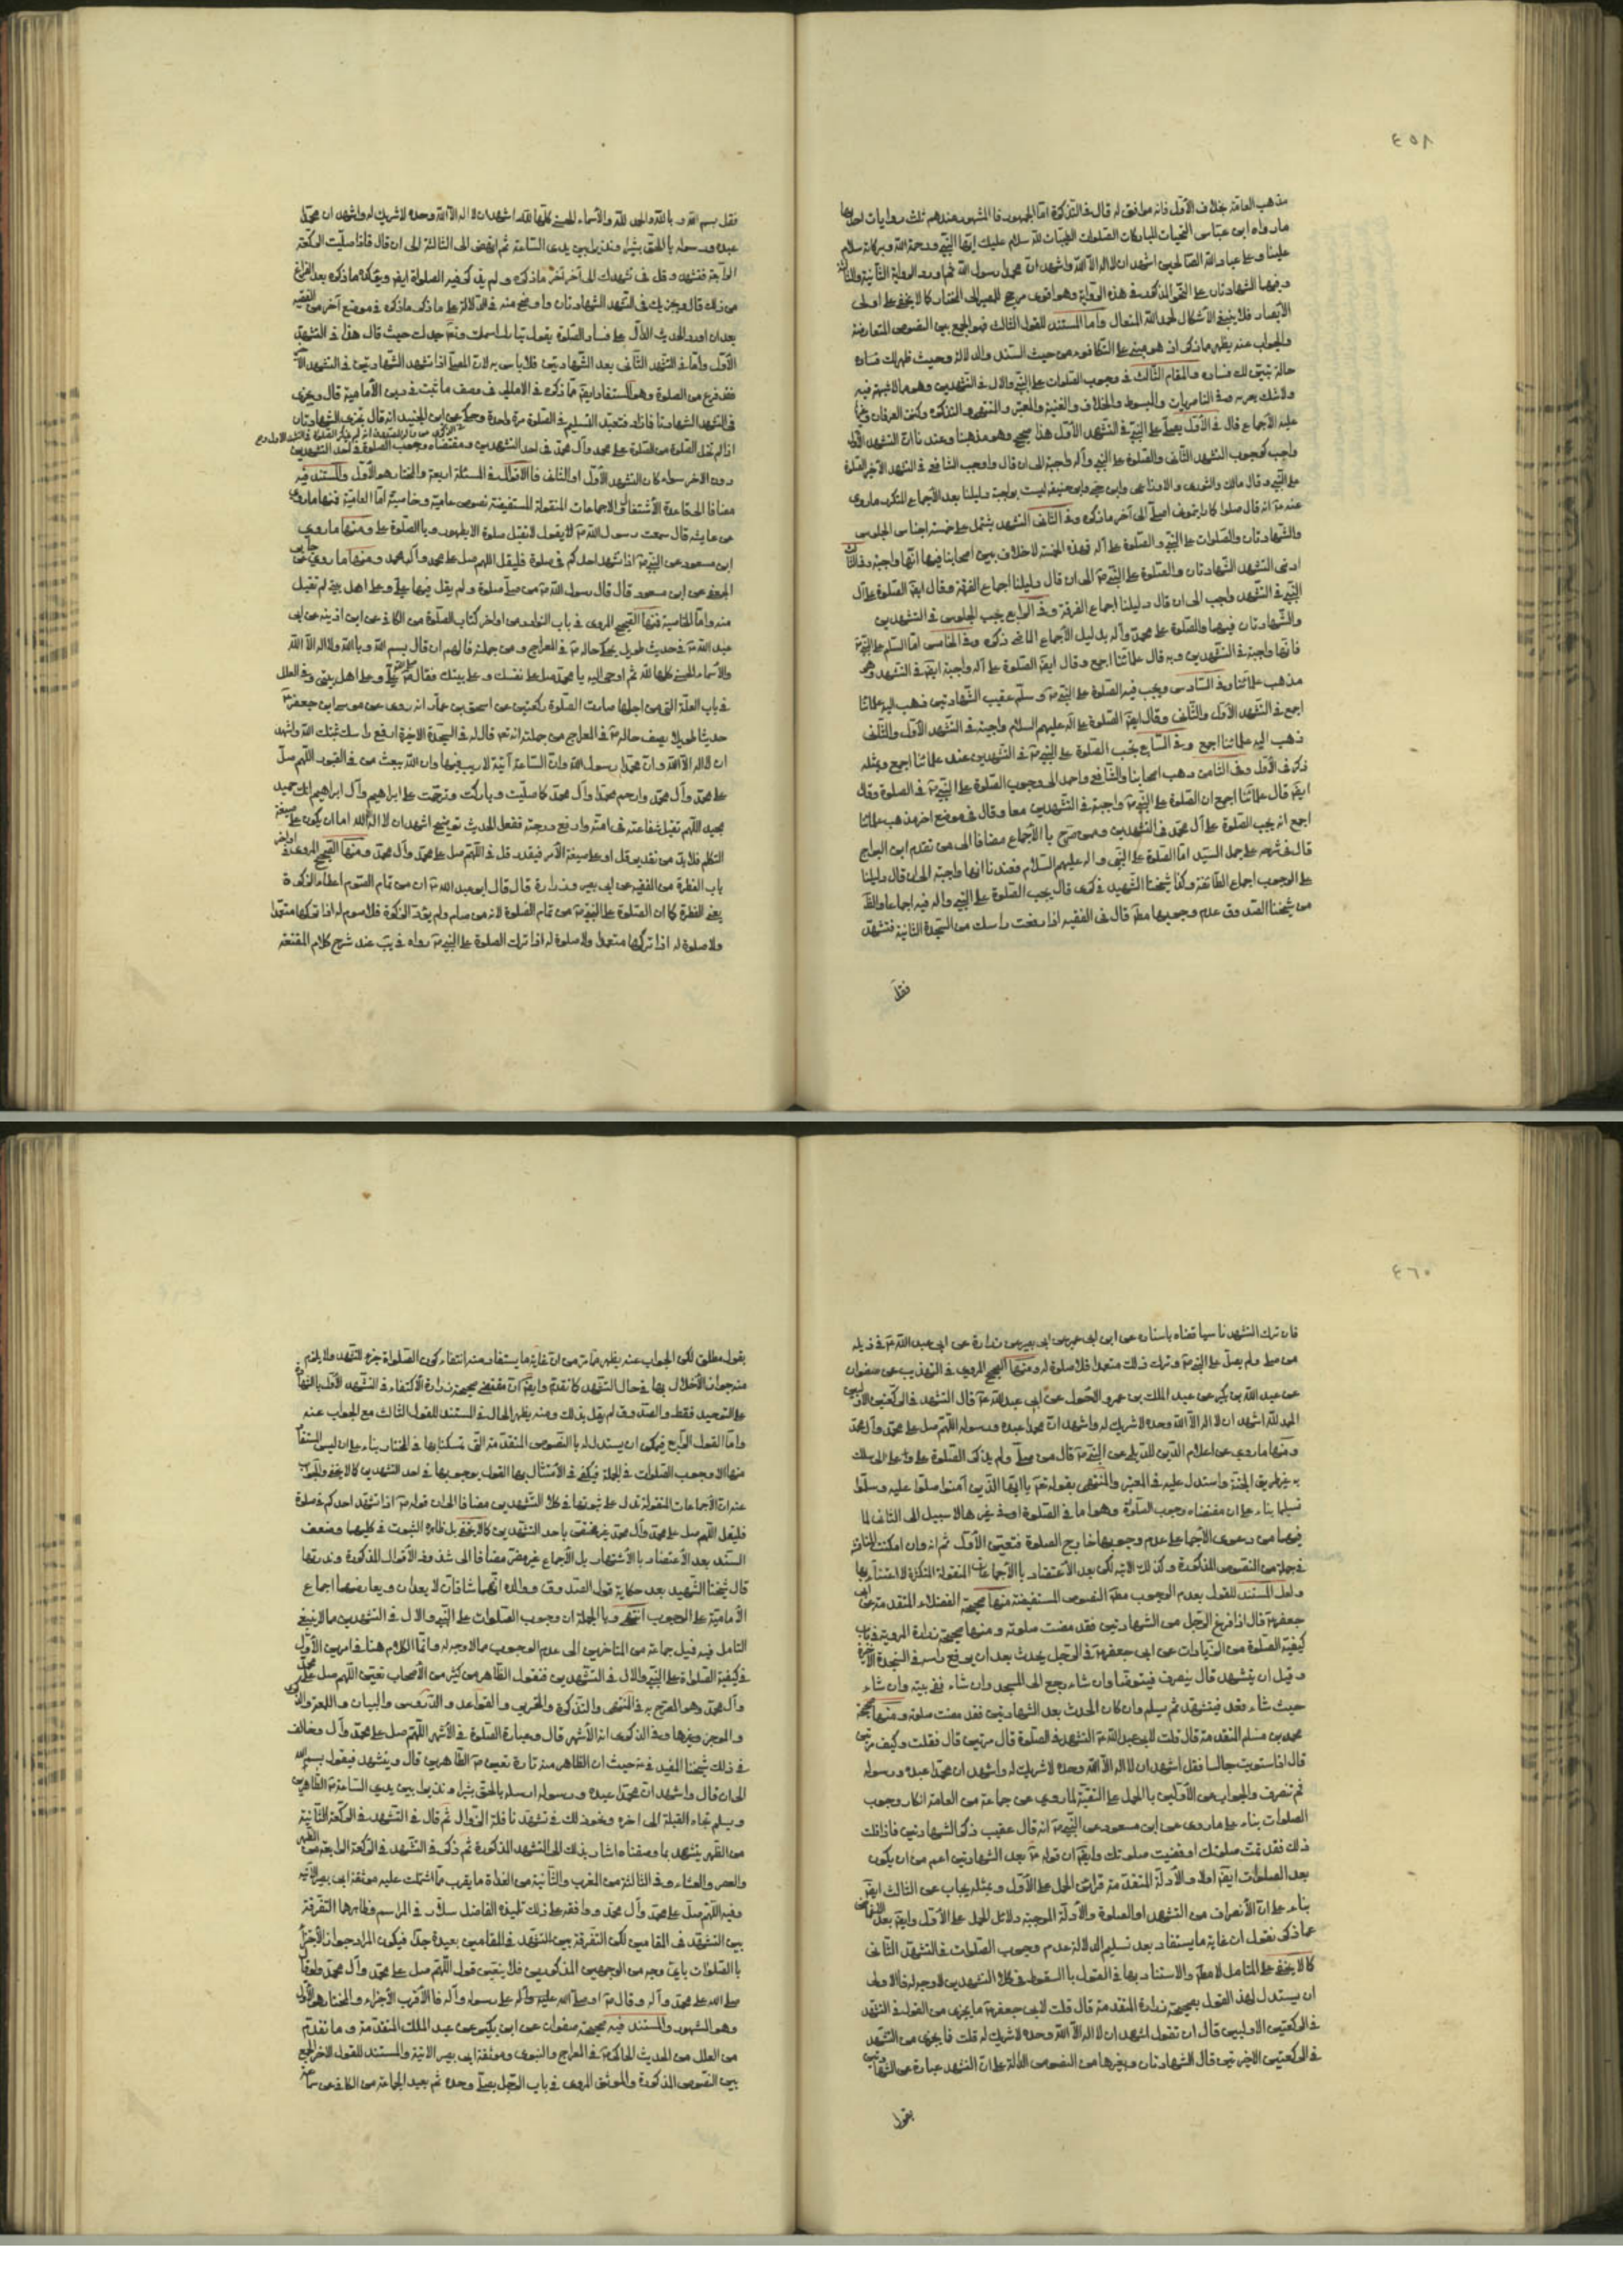 ٤٥٨
مذهب العامة بخلاف الأول فانه موافق له قال في التذكرة امّا الجمهور فالمشهور عندهم ثلث روايات احدها
ما رواه ابن عباس التحيات المباركات الصلوات الطيبات لله سلام عليك ايها النبي ورحمة الله وبركاته سلام
علينا وعلى عباد الله الصالحين اشهد ان لا اله الا الله واشهد ان محمدا رسول الله ثم اورد الرواية الثانية والثالثة
وفيها الشهادتان على النحو المذكور في هذه الرواية وهو اقوى مرجح للمصير الى المختار كما لا يخفى على اولي
الأبصار فلا يخفى الاشكال لحمد الله المتعال واما المستند للقول الثالث فهو الجمع بين النصوص المتعارضة
والجواب عنه يظهر مما ذكر اذ هو مبني على التكافؤ من حيث السند والدلالة وحيث ظهر لك فساده
حاله تبين لك فساده والمقام الثالث في وجوب الصلوات على النبي والال في التشهدين وهو مما لا شبهة فيه
ولا شك يعتريه وفي الناصريات والمبسوط والخلاف والغنية والمعتبر والمنتهى والتذكرة وكنز العرفان وغيرها
عليه الأجماع قال في الأول يصلي على النبي في التشهد الأول هذا صحيح وهو مذهبنا وعندنا ان التشهد الأول
واجب كوجوب التشهد الثاني والصلوة على النبي وآله واجبة الى ان قال واوجب الشافعي في التشهد الأخير الصلوة
على النبي وقال مالك والثوري والاوزاعي وابن حي وابو حنيفة ليست بواجبة دليلنا بعد الأجماع المتكرر ما روي
عنه انه قال صلوا كما رايتموني اصلي الى آخر ما ذكره وفي الثاني التشهد يشتمل على خمسة اجناس الجلوس
والشهادتان والصلوات على النبي والصلوة على آله فهذه الخمسة لا خلاف بين اصحابنا فيها انها واجبة وفي الثالث
ادنى التشهد الشهادتان والصلوة على النبي الى ان قال دليلنا اجماع الفرقة وقال ايضا الصلوة على آل
النبي في التشهد واجب الى ان قال دليلنا اجماع الفرقة وفي الرابع يجب الجلوس في التشهدين
والشهادتان فيهما والصلوة على محمد وآله بدليل الأجماع الماضي ذكره وفي الخامس امّا السلم على النبي
فانها واجبة في التشهدين وبه قال علمائنا اجمع وقال ايضا الصلوة على آله واجبة ايضا في التشهد وهو
مذهب علمائنا وفي السادس ويجب فيه الصلوة على النبي وسلم عقيب الشهادتين ذهب اليه علمائنا
اجمع في التشهد الأول والثاني وقال ايضا الصلوة على آله عليهم السلام واجبة في التشهد الأول والثاني
ذهب اليه علمائنا اجمع وفي السابع تجب الصلوة على النبي في التشهدين عند علمائنا اجمع ومثله
ذكر في الأول وفي الثامن ذهب اصحابنا والشافعي واحمد الى وجوب الصلوة على النبي في الصلوة وقال
ايضا قال علمائنا اجمع ان الصلوة على النبي واجبة في التشهدين معا وقال في موضع اخر مذهب علمائنا
اجمع انه يجب الصلوة على آل محمد في التشهدين وممن صرح بالأجماع مضافا الى من تقدم ابن البراج
قال في شرحه على جمل السيد امّا الصلوة على النبي واله عليهم السلام فعندنا انها واجبة الى ان قال دليلنا
على الوجوب اجماع الطائفة وكذا شيخنا الشهيد في كرى قال يجب الصلوة على النبي واله فيه اجماعا والظاهر
من شيخنا الصدوق عدم وجوبها مطلقا قال في الفقيه اذا رفعت راسك من السجدة الثانية فتشهد
فقل
فقل بسم الله وبالله والحمد لله والأسماء الحسنى كلها لله اشهد ان لا اله الا الله وحده لا شريك له واشهد ان محمدا
عبده ورسوله بالحق بشيرا ونذيرا بين يدي الساعة ثم انهض الى الثالثة الى ان قال فاذا صليت الركعة
الرابعة فتشهد وقل في تشهدك الى آخر ما ذكره ولم يذكر فيه الصلوة ايضا ويؤكده ما ذكره بعد الفراغ
من ذلك قال ويجزيك في التشهد الشهادتان واوضح منه في الدلالة على ما ذكر ما ذكره في موضع آخر من الفقيه
بعد ان اورد الحديث الدال على فساد الصلوة بقول تبارك اسمك وتعالى جدك حيث قال هذا في التشهد
الأول وامّا في التشهد الثاني بعد الشهادتين فلا باس به لان المصلي اذا تشهد الشهادتين في التشهد الأخير
فقد فرغ من الصلوة وهو المستفاد ايضا مما ذكره في الامالي في وصف ما ثبت في دين الأمامية قال ويجزي
في التشهد الشهادتان فما زاد فتعبد التسليم في الصلوة مرة واحدة وحكي عن ابن الجنيد انه قال تجزي الشهادتان
اذا لم تخل الصلوة من الصلوة على محمد وآل محمد في احد التشهدين ومقتضاه وجوب الصلوة في احد التشهدين
دون الاخر سواء كان التشهد الأول او الثاني فالاقوال في المسئلة اربعة والمختار هو الأول والمستند فيه
مضافا الى قاعدة الأشتغال والاجماعات المنقولة المستفيضة نصوص عامية وخاصية امّا العامية فمنها ما روي
عن عايشه قال سمعت رسول الله يقول لا تقبل صلوة الا بطهور وبالصلوة علي ومنها ما روي
ابن مسعود عن النبي اذا تشهد احدكم في صلوة فليقل اللهم صل على محمد وآل محمد ومنها ما روي عن جابر
الجعفي عن ابن مسعود قال قال رسول الله من صلى صلوة ولم يصل فيها علي وعلى اهل بيتي لم تقبل
منه وامّا الخاصية فمنها الصحيح المروي في باب النوادر من اواخر كتاب الصلوة من الكافي عن ابن اذينه عن ابي
عبد الله في حديث طويل يحكي حاله في المعراج ومن جملته فالهم ان قال بسم الله وبالله ولا اله الا الله
والأسماء الحسنى كلها لله ثم اوحى اليه يا محمد صل على نفسك وعلى اهل بيتك فقال صلى الله علي وعلى اهل بيتي وفي العلل
في باب العلة التي من اجلها صارت الصلوة ركعتين عن اسحق بن عمار انه روى عن موسى بن جعفر
حديثا طويلا يصف حاله في المعراج من جملته انه تعالى قال له في السجدة الاخيرة ارفع راسك ثبتك الله واشهد
ان لا اله الا الله وان محمدا رسول الله وان الساعة آتية لا ريب فيها وان الله يبعث من في القبور اللهم صل
على محمد وآل محمد وارحم محمدا وآل محمد كما صليت وباركت وترحمت على ابراهيم وآل ابراهيم انك حميد
مجيد اللهم تقبل شفاعته في امته وارفع درجته ففعل الحديث توضيح اشهد ان لا اله الا الله اما ان يكون على صيغة
التكلم فلا بد من تقدير قل او على صيغة الأمر فيقدر قل في اللهم صل على محمد وآل محمد ومنها الصحيح المروي في اواخر
باب الفطرة من الفقيه عن ابي بصير وزرارة قال قال ابو عبد الله ان من تمام الصوم اعطاء الزكوة
يعني الفطرة كما ان الصلوة على النبي من تمام الصلوة لانه من صام ولم يؤد الزكوة فلا صوم له اذا تركها متعمدا
ولا صلوة له اذا تركها متعمدا ولا صلوة له اذا ترك الصلوة على النبي رواه في يب عند شرح كلام المقنعة
٤٦٠
فان ترك التشهد ناسيا قضاه باسناده عن ابن ابي عمير عن ابي بصير عن زرارة عن ابي عبد الله في ذيله
من صلى ولم يصل على النبي وترك ذلك متعمدا فلا صلوة له ومنها الصحيح المروي في التهذيب عن صفوان
عن عبد الله بن بكير عن عبد الملك بن عمرو الاحول عن ابي عبد الله قال التشهد في الركعتين الاوليين
الحمد لله اشهد ان لا اله الا الله وحده لا شريك له واشهد ان محمدا عبده ورسوله اللهم صل على محمد وآل محمد
ومنها ما روي عن اعلام الدين للديلمي عن النبي قال من صلى ولم يذكر الصلوة علي وعلى آلي سلك
به غير طريق الجنة واستدل عليه في المعتبر والمنتهى بقوله تعالى يا ايها الذين آمنوا صلوا عليه وسلموا
تسليما بناء على ان مقتضاه وجوب الصلوة وهو اما في الصلوة او في غيرها لا سبيل الى الثاني لما
فيهما من دعوى الأجماع على عدم وجوبها خارج الصلوة فتعين الأول ثم انه وان امكنت المناقشة
في جملة من النصوص المذكورة وكذلك الاية لكن بعد الأعتضاد بالأجماعات المنقولة المتكررة لا اعتناء بها
ولعل المستند للقول بعدم الوجوب مطلقا النصوص المستفيضة منها صحيحة الفضلاء المتقدمة عن ابي
جعفر قال اذا فرغ الرجل من الشهادتين فقد مضت صلوته ومنها صحيحة زرارة المروية في باب
كيفية الصلوة من الزيادات عن ابي جعفر في الرجل يحدث بعد ان يرفع راسه في السجدة الأخيرة
وقبل ان يتشهد قال ينصرف فيتوضأ وان شاء رجع الى المسجد وان شاء ففي بيته وان شاء
حيث شاء فقعد فيتشهد ثم يسلم وان كان الحدث بعد الشهادتين فقد مضت صلوته ومنها صحيحة
محمد بن مسلم المتقدمة قال قلت لابي عبد الله التشهد في الصلوة قال مرتين قال فقلت وكيف مرتين
قال اذا استويت جالسا فقل اشهد ان لا اله الا الله وحده لا شريك له واشهد ان محمدا عبده ورسوله
ثم تنصرف والجواب عن الأولين بالحمل على التقية لما روي عن جماعة من العامة انكار وجوب
الصلوات بناء على ما روي عن ابن مسعود عن النبي انه قال عقيب ذكر الشهادتين فاذا قلت
ذلك فقد تمت صلوتك او قضيت صلوتك وايضا ان قوله بعد الشهادتين اعم من ان يكون
بعد الصلوات ايضا اولا والأدلة المتقدمة قرائن الحمل على الأول وبمثله يجاب عن الثالث ايضا
بناء على ان الأنصراف من التشهد او الصلوة والأدلة الموجبة دلائل الحمل على الأول وايضا بعد الاغماض
عما ذكر نقول ان غاية ما يستفاد بعد تسليم الدلالة عدم وجوب الصلوات في التشهد الثاني
كما لا يخفى على المتامل لا مطلقا والاستناد بها في القول بالسقوط في كلا التشهدين لا وجه له فالاولى
ان يستدل لهذا القول بصحيحة زرارة المتقدمة قال قلت لابي جعفر ما يجزي من القول في التشهد
في الركعتين الاوليين قال ان تقول اشهد ان لا اله الا الله وحده لا شريك له قلت فما يجزي من التشهد
في الركعتين الاخيرتين قال الشهادتان وبغيرها من النصوص الدالة على ان التشهد عبارة عن الشهادتين
بقول
بقول مطلق لكن الجواب عنه يظهر مما مر من ان غاية ما يستفاد منه انتفاء كون الصلواة جزء للتشهد ولا يلزم
منه جواز الأخلال بها في حال التشهد كما تقدم وايضا ان مقتضى صحيحة زرارة الأكتفاء في التشهد الأول بالشهادة
على التوحيد فقط والصدوق لم يقل بذلك ومنه يظهر الحال في المستند للقول الثالث مع الجواب عنه
واما القول الرابع فيمكن ان يستدل له بالنصوص المتقدمة التي تمسكنا بها في المختار بناء على ان ليس المستفاد
منها الا وجوب الصلوات في الجملة فيكفي في الأمتثال بها القول بوجوبها في احد التشهدين كما لا يخفى والجواب
عنه ان الأجماعات المنقولة تدل على ثبوتها في كلا التشهدين مضافا الى ان قوله اذا تشهد احدكم في صلوة
فليقل اللهم صل على محمد وآل محمد غير مختص باحد التشهدين كما لا يخفى بل ظاهره الثبوت في كليهما وضعف
السند بعد الأعتضاد بالأشتهار بل الأجماع غير مضر مضافا الى شذوذ الأقوال المذكورة وندرتها
قال شيخنا الشهيد بعد حكاية قول الصدوق ووالده انهما شاذان لا يعدان ويعارضهما اجماع
الأمامية على الوجوب انتهى وبالجملة ان وجوب الصلوات على النبي والال في التشهدين مما لا ينبغي
التامل فيه فميل جماعة من المتاخرين الى عدم الوجوب مما لا وجه له وانما الكلام هنا في امرين الأول
في كيفية الصلواة على النبي والال في التشهدين فنقول الظاهر من كثير من الأصحاب تعيين اللهم صل على محمد
وآل محمد وهو المصرح به في المنتهى والتذكرة والتحرير والقواعد والدروس والبيان واللمعة والذكرى
والموجز وغيرها وفي الذكرى انه الأشهر قال وعبارة الصلوة في الأشهر اللهم صل على محمد وآل وخالف
في ذلك شيخنا المفيد في حيث ان الظاهر منه تارة تعيين الطاهرين قال ويتشهد فيقول بسم الله
الى ان قال واشهد ان محمدا عبده ورسوله ارسله بالحق بشيرا ونذيرا بين يدي الساعة الطاهرين
ويسلم تجاه القبلة الى اخره ونحو ذلك في تشهد نافلة الزوال ثم قال في التشهد في الركعة الثانية
من الظهر يتشهد بما وصفناه اشار بذلك الى التشهد المذكورة ثم ذكر في التشهد في الركعة الرابعة من الظهر
والعصر والعشاء وفي الثالثة من المغرب والثانية من الغداة ما يقرب مما اشتملت عليه موثقة ابي بصير الآتية
وفيه اللهم صل على محمد وآل محمد ووافقه على ذلك تلميذه الفاضل سلار في المراسم وظاهرها التفرقة
بين التشهد في المقامين لكن التفرقة بين التشهد في المقامين بعيدة جدا فيكون المراد جواز الأجتزاء
بالصلوات باي وجه من الوجهين المذكورين فلا يتعين قول اللهم صل على محمد وآل محمد ولو قال
صلى الله على محمد وآله وقال او صلى الله عليه وآله على رسوله وآله فالاقرب الأجزاء والمختار هو الأول
وهو المشهور والمستند فيه صحيحة صفوان عن ابن بكير عن عبد الملك المتقدمة وما تقدم
من العلل من الحديث الحاكي في المعراج والنبوي وموثقة ابي بصير الاتية والمستند للقول الاخر الجمع
بين النصوص المذكورة والموثق المروي في باب الرجل يصلي وحده ثم يعيد الجماعة من الكافي عن سماعة